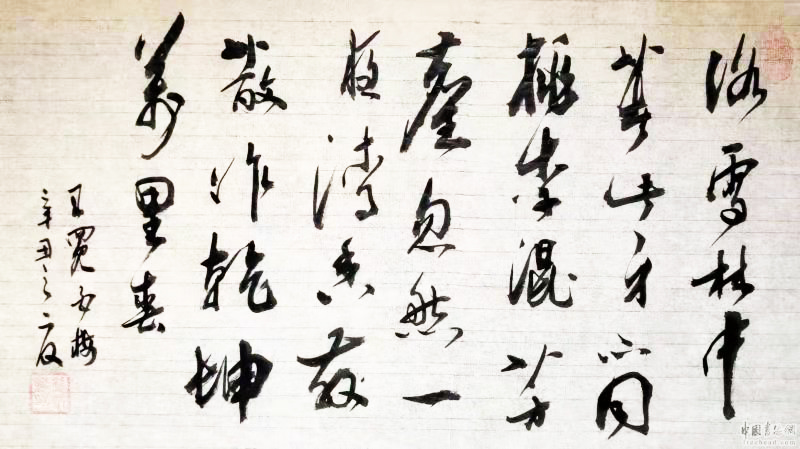 冰雪林中
著此身不同
桃李混芳
塵忽然一
夜清香發
散作乾坤
萬里春
王冕白梅
辛丑之夏